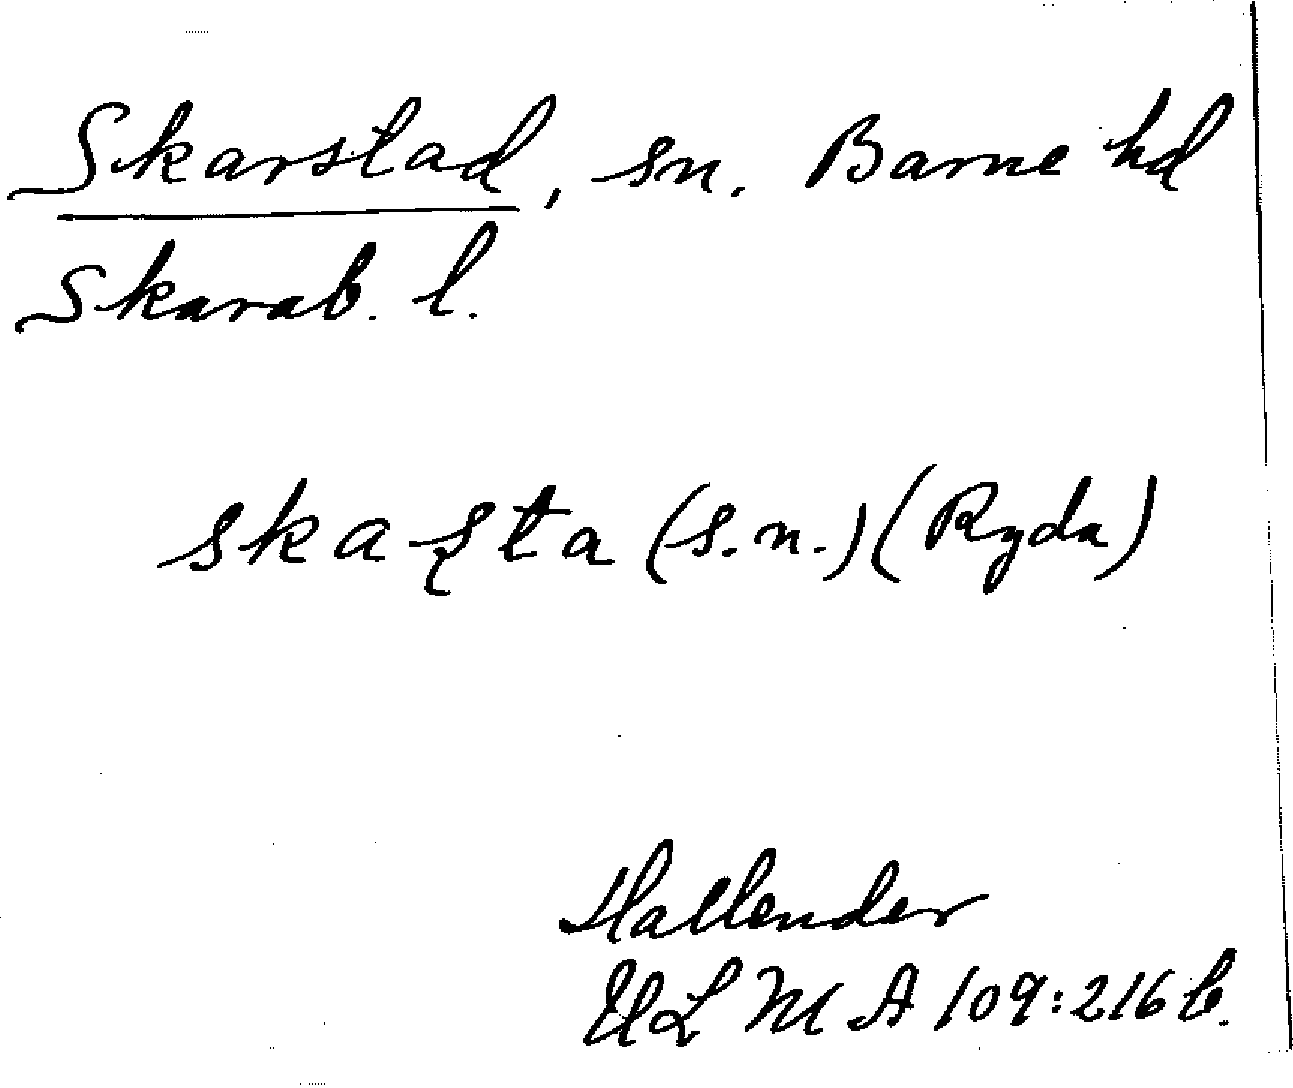 Skarstad, sn. Barne hd
Skarab. l.
skaʂta (s.n.) (Ryda)
Hallender
ULMA 109:216 b.